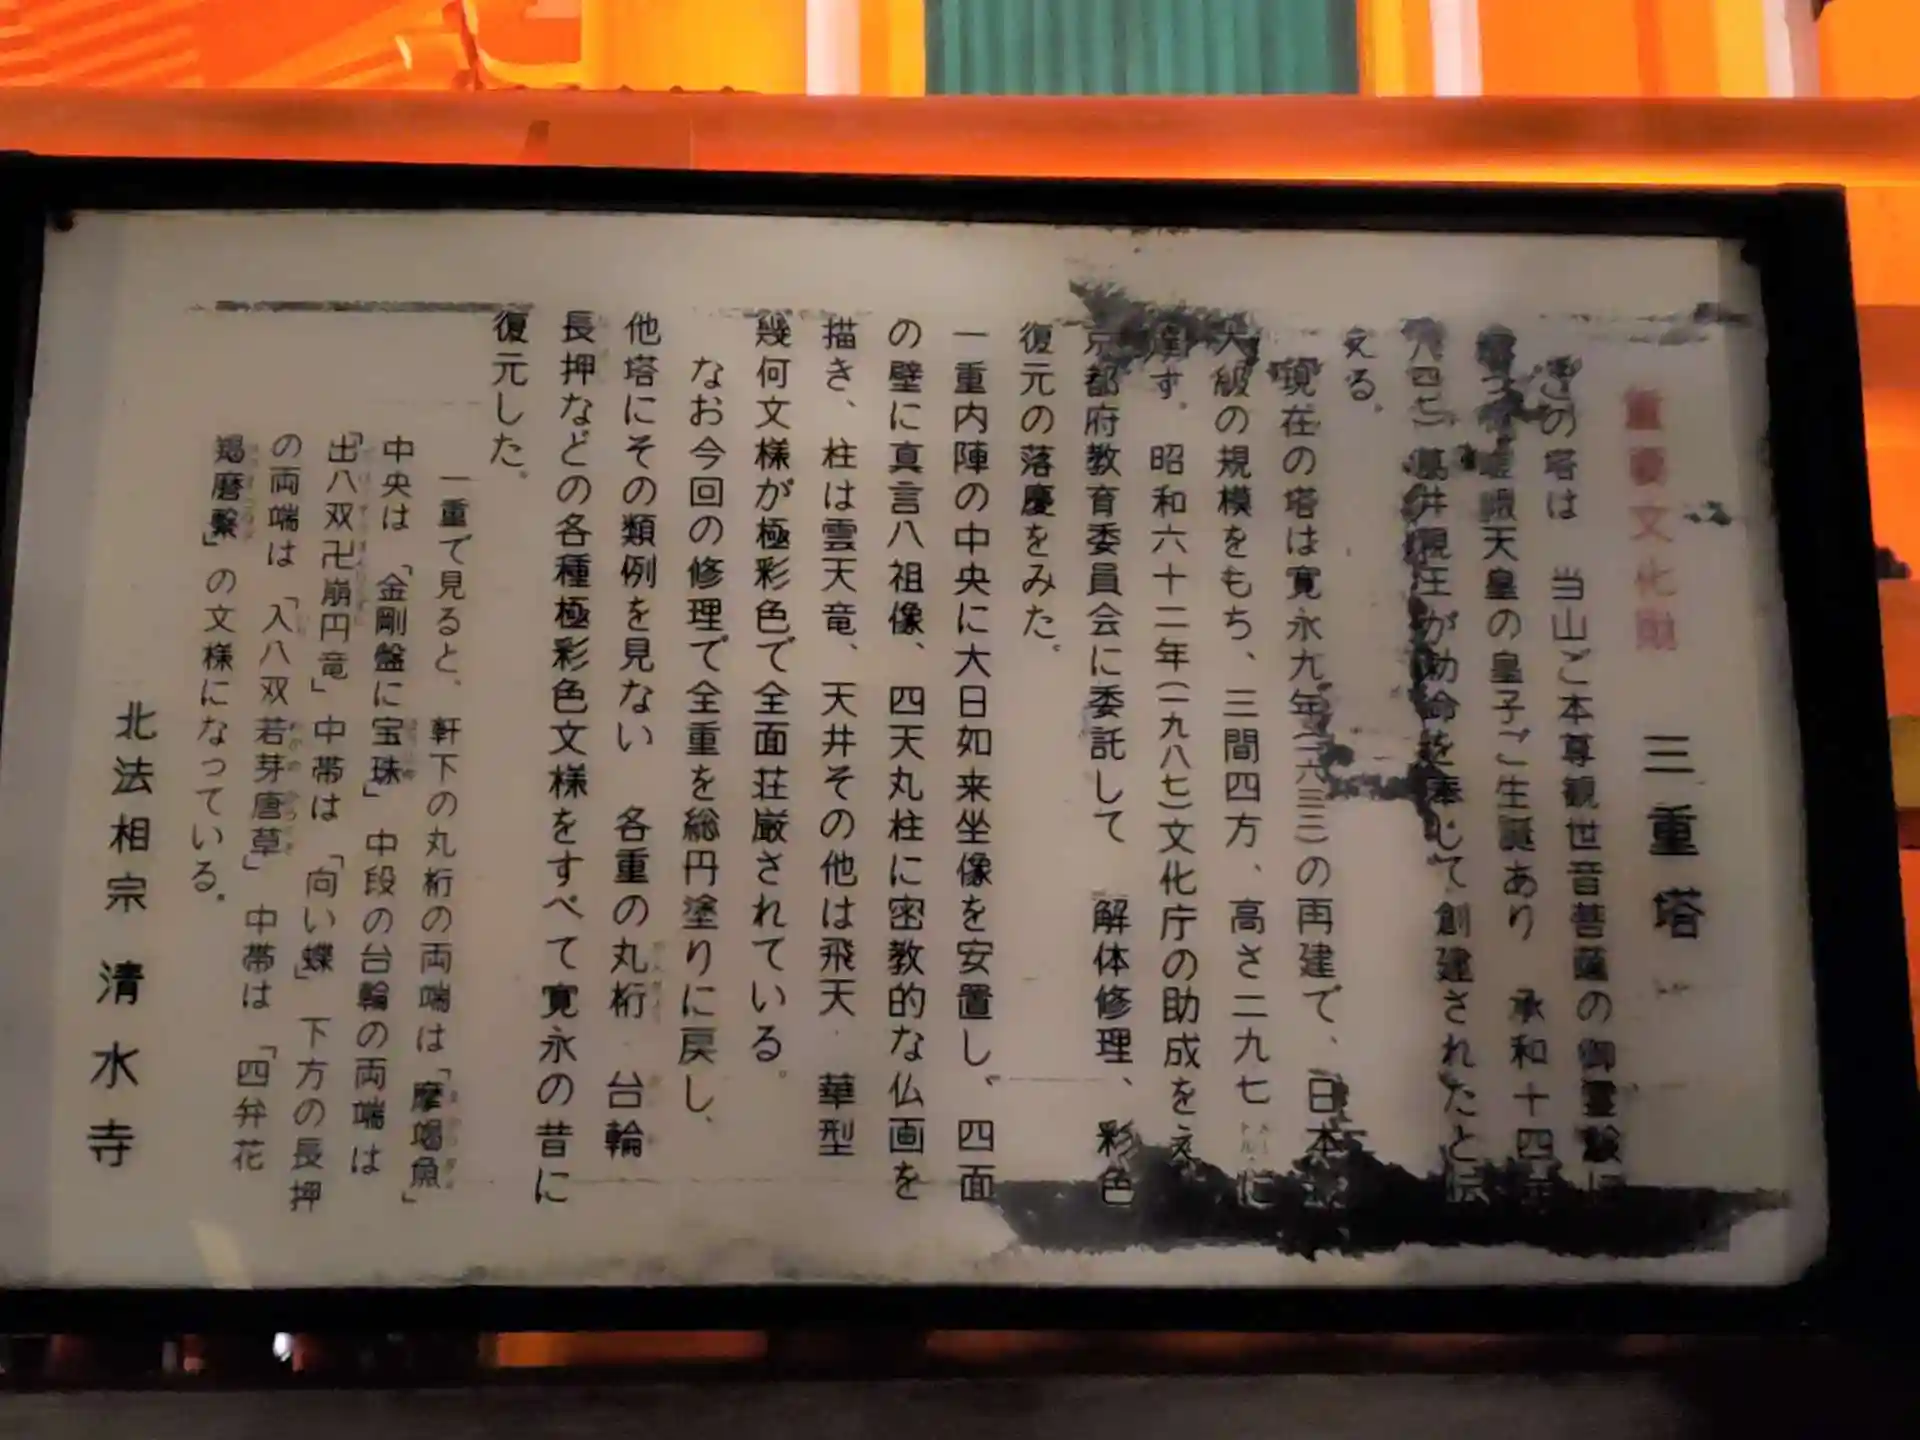 重要文化財 三重塔
この塔は 当山ご本尊観世音菩薩の御霊験に
嵯峨天皇の皇子ご生誕あり 承和十四年
葛井親王が勅命を奉じて創建されたと伝
える。
現在の塔は寛永九年(一六三二)の再建で、日本
大級の規模をもち、三間四方、高さ二九七メートルに
達す。昭和六十二年(一九八七)文化庁の助成をえ
京都府教育委員会に委託して 解体修理、彩色
復元の落慶をみた。
一重内陣の中央に大日如来坐像を安置し、四面
の壁に真言八祖像、四天丸柱に密教的な仏画を
描き、柱は雲天竜、天井その他は飛天 華型
幾何文様が極彩色で全面荘厳されている。
なお今回の修理で全重を総円塗りに戻し、
他塔にその類例を見ない 各重の丸桁 台輪
長押などの各種極彩色文様をすべて寛永の昔に
復元した。
一重で見ると、軒下の丸桁の両端は「摩竭魚」
中央は「金剛盤に宝珠」中段の台輪の両端は
「出八双卍崩円竜」中帯は「向い蝶」下方の長押
の両端は「入八双若芽唐草」中帯は「四弁花
羯磨繋」の文様になっている。
北法相宗 清水寺